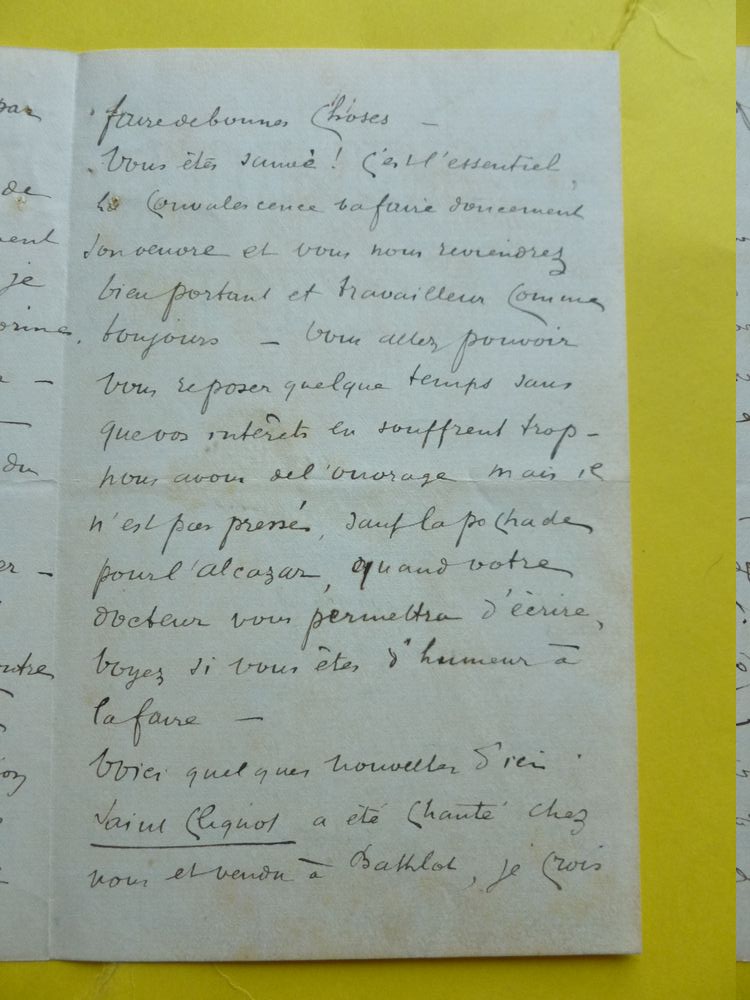 par
de
ment
je
—
du
er —
faire de bonnes choses —
Vous êtes sauvé ! c'est l'essentiel,
la convalescence va faire doucement
son oeuvre et vous nous reviendrez
bien portant et travailleur comme
toujours — Vous allez pouvoir
vous reposer quelque temps sans
que vos intérêts en souffrent trop —
nous avons de l'ouvrage mais il
n'est pas pressé, sauf la pochade
pour l'alcazar, quand votre
docteur vous permettra d'écrire,
voyez si vous êtes d'humeur à
la faire —
Voici quelques nouvelles d'ici :
Saint Clignol a été chanté chez
nous et vendu à Bathlot, je crois